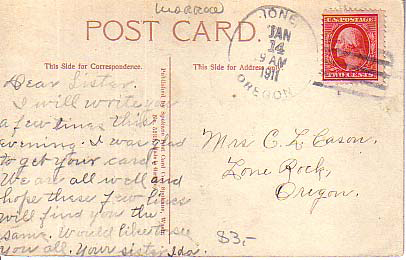 POST CARD.
IONE
JAN
14
9 AM
1911
OREGON
U.S. POSTAGE
TWO CENTS
This Side for Correspondence.
This Side for Address only.
Dear Sister.
I will write you
a few lines this
evening. I was glad
to get your card.
We are all well and
hope these few lines
will find you the
same. Would like to see
you all. Your sister Ida.
Mrs C. L. Cason.
Lone Rock,
Oregon.
83,-